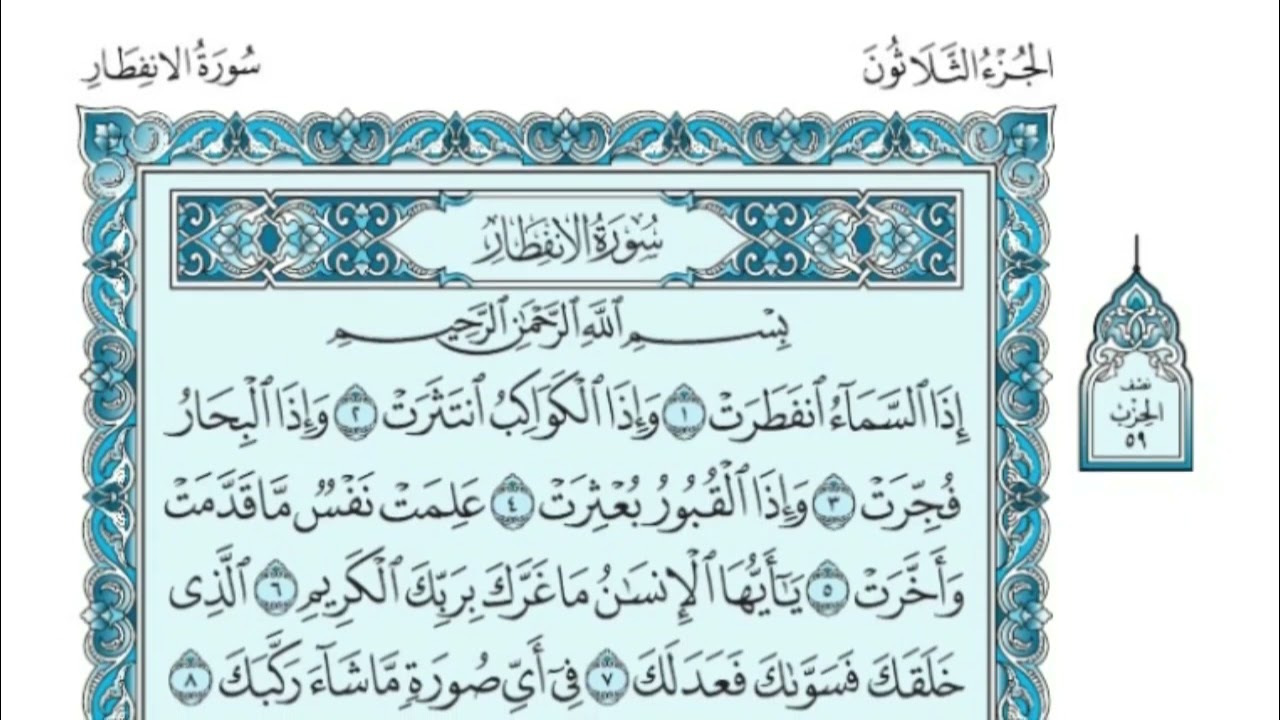 الجُزْءُ الثَّلَاثُونَ
سُورَةُ الانفِطَارِ
سُورَةُ الانفِطَارِ
بِسْمِ ٱللَّهِ ٱلرَّحْمَٰنِ ٱلرَّحِيمِ
إِذَا ٱلسَّمَآءُ ٱنفَطَرَتْ ١ وَإِذَا ٱلْكَوَاكِبُ ٱنتَثَرَتْ ٢ وَإِذَا ٱلْبِحَارُ
فُجِّرَتْ ٣ وَإِذَا ٱلْقُبُورُ بُعْثِرَتْ ٤ عَلِمَتْ نَفْسٌ مَّا قَدَّمَتْ
وَأَخَّرَتْ ٥ يَٰٓأَيُّهَا ٱلْإِنسَٰنُ مَا غَرَّكَ بِرَبِّكَ ٱلْكَرِيمِ ٦ ٱلَّذِى
خَلَقَكَ فَسَوَّىٰكَ فَعَدَلَكَ ٧ فِىٓ أَىِّ صُورَةٍ مَّا شَآءَ رَكَّبَكَ ٨
نصف
الحِزْبُ
٥٩